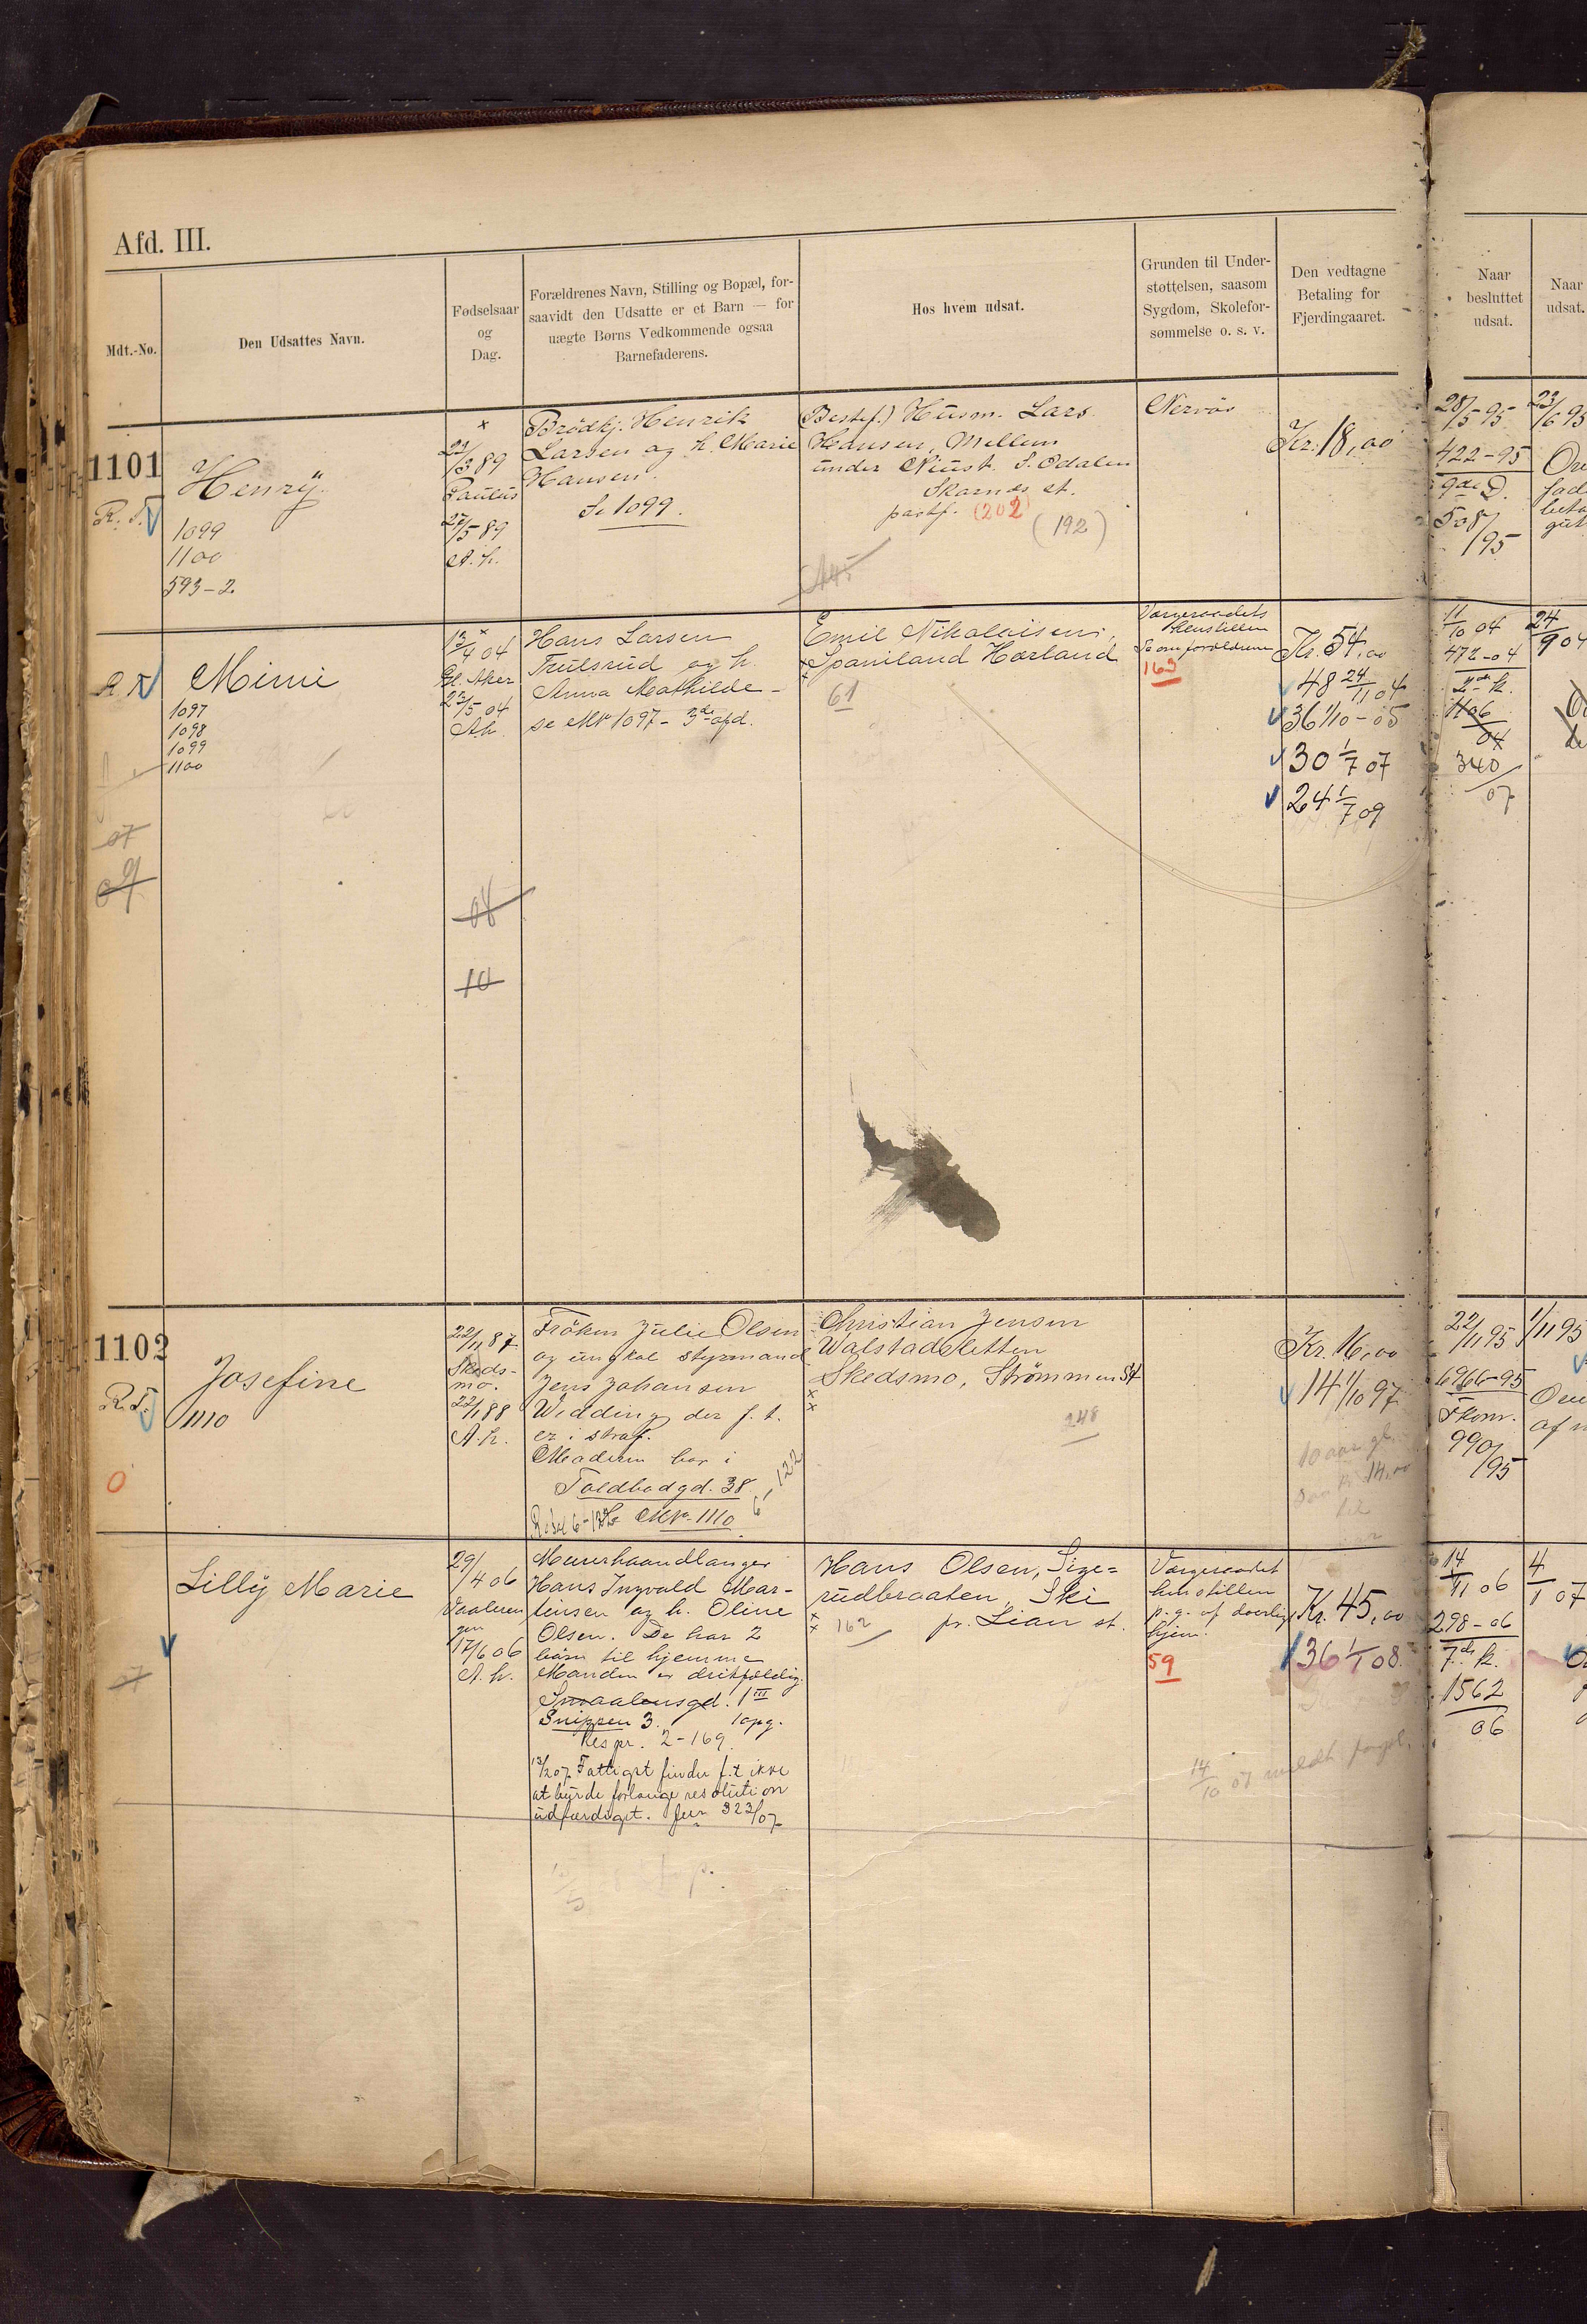 Afd. III.
Mdt.-No.
Den Udsattes Navn.
Fødselsaar
og
Dag.
Forældrenes Navn, Stilling og Bopæl, for-
saavidt den Udsatte er et Barn — for
uægte Børns Vedkommende ogsaa
Barnefaderens.
Hos hvem udsat.
Grunden til Under-
støttelsen, saasom
Sygdom, Skolefor-
sømmelse o. s. v.
Den vedtagne
Betaling for
Fjerdingaaret.
Naar
besluttet
udsat.
Naar
udsat.
1101
Henrÿ
1099
1100
593-2
21/3 89
Paulus
27/5 89
A. h.
Brödkj. Henrik
Larsen og h. Marie
Hansen.
Se 1099.
(Bestef.) Husm. Lars
Hansen, Mellem
under Niust. S. Odalen
Skarnes st.
(202)
(192)
Nervös
Kr. 18,00
28/5 95
422-95
9de D.
508/95
23/6 95
Mimi
1097
1098
1099
1100
07
09
13/4 04
Gl. Aker
22/5 04
A.h.
08
10
Hans Larsen
Trulsrud og h.
Anna Mathilde -
se No 1097 - 3de afd.
Emil Nikolaisen,
Spaniland Hørland
61
Værgeraadets
henstillen
Se om forældrene
163
Kr. 54,00
48 24/11 04
36 1/10-05
30 1/7 07
24 1/7 09
11/10 04
472-04
2de k.
1106/04
340/07
24/9 04
1102
R. T.
Josefine
1110
0
22/11 87
Skeds-
mo.
22/1 88
A.h.
Fröken Julie Olsen
og ungkal styrmand
Jens Johansen
Wedding der f. t.
er i straf.
Moderen bor i
Toldbodgd. 38
No 1110
6, 122
Christian Jensen
Walstadsletten
Skedsmo, Strömmen St
248
Kr. 16,00
14 1/10 97
10 aar gl.
14,00
22/11 95
6966-95
Fkom.
990/95
1/11 95
Lillÿ Marie
07
29/4 06
Vaaleren
gen
17/6 06
A. h.
Murerhaandlanger
Hans Ingvald Mar-
tinsen og h. Oline
Olsen. De har 2
børn til hjemme
Manden er drikfældig.
Smaalensgd. 1 III
Snippen 3. 1 opg.
Respr. 2-169
13/2 07 Fattigst finder f.t ikke
at burde forlange resolution
udfærdiget. Jur 323/07
Hans Olsen, Sige=
rudbraaten, Ski
pr. Lian st.
162
Værgeraadet
henstillen
p. g. af daarlig
hjem.
59
Kr. 45,00
36 1/1 08.
14/10 07 meldt
14/11 06
298-06
7de k.
1562/06
4/1 07